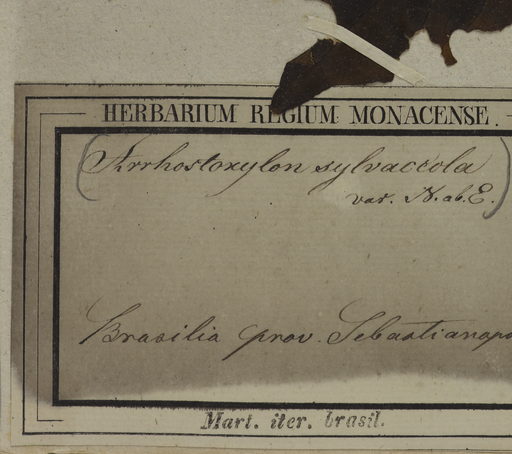 HERBARIUM REGIUM MONACENSE.
(Arrhostoxylon sylvaccola
var. N. ab. E.)
Brasilia prov. Sebastianopo
Mart. iter. brasil.